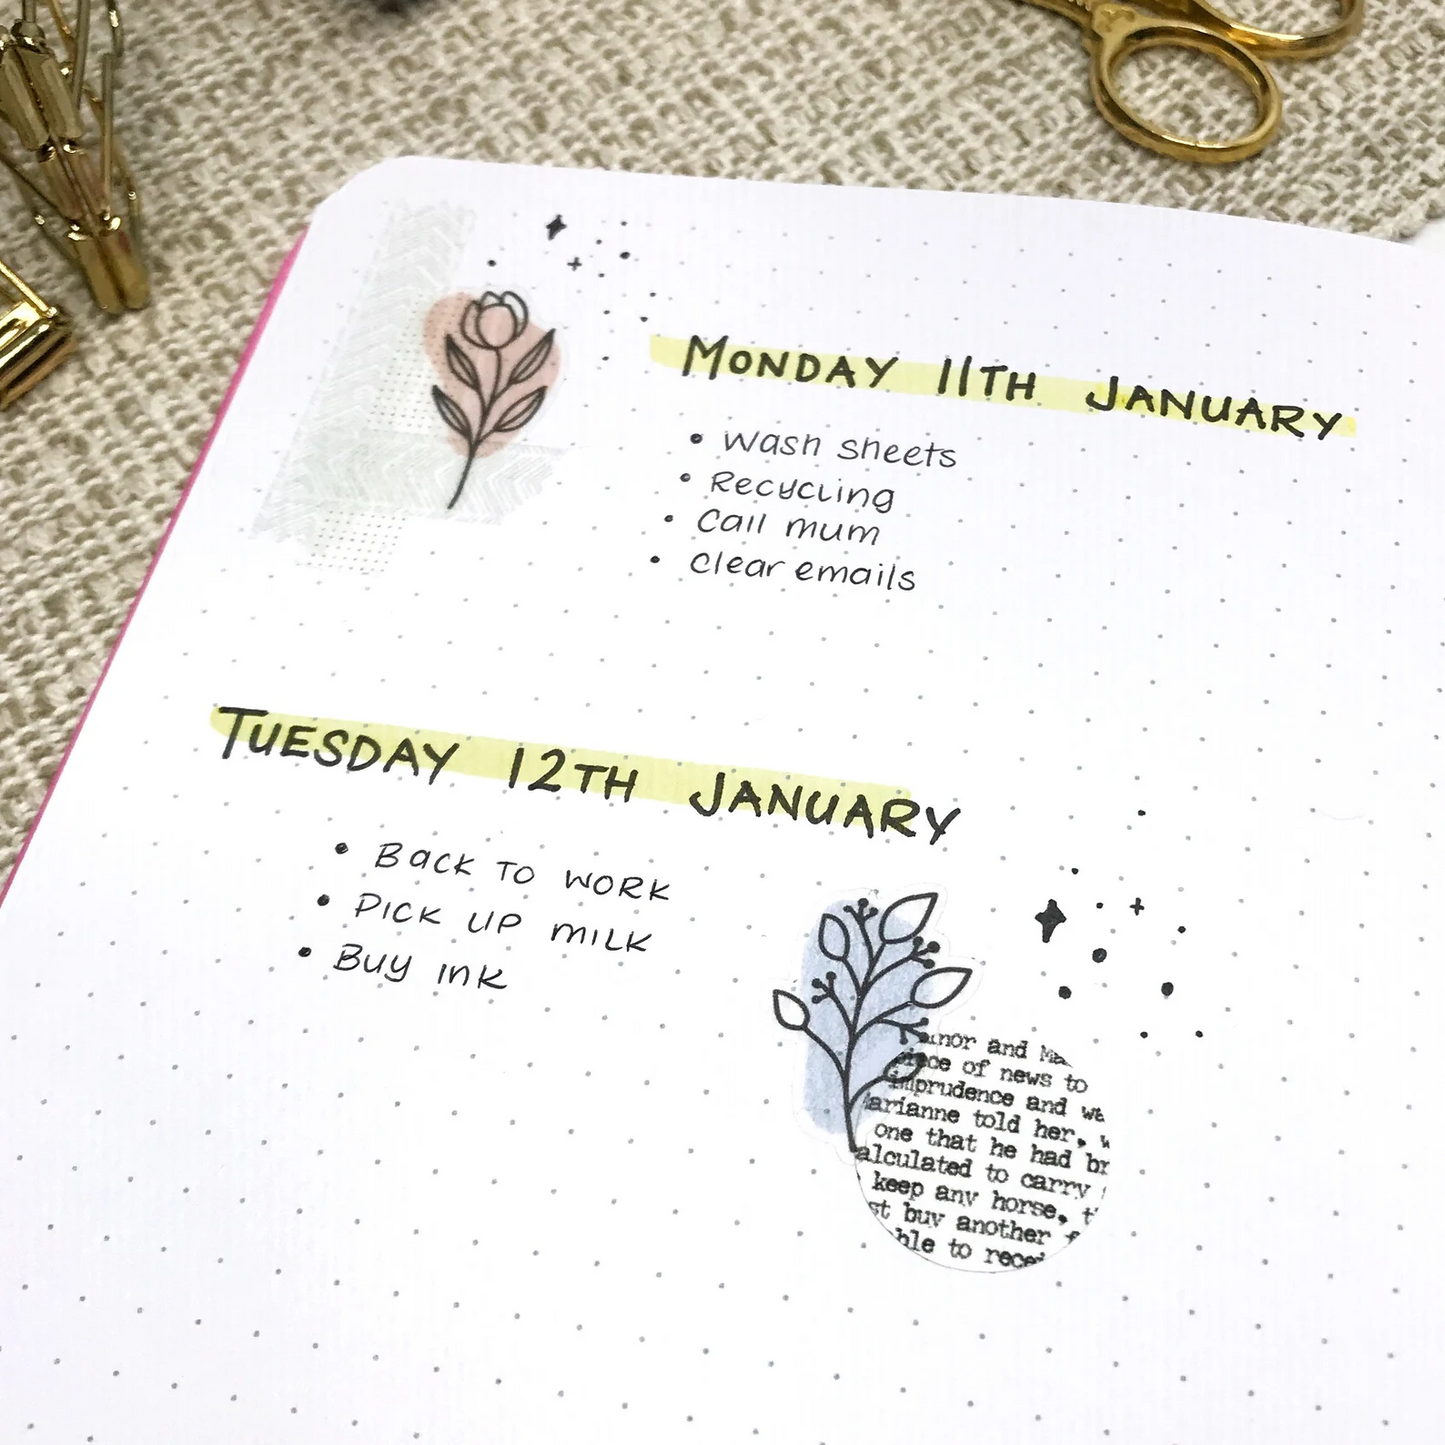 MONDAY 11TH JANUARY
• Wash sheets
• Recycling
• Call mum
• Clear emails
TUESDAY 12TH JANUARY
• BACK TO WORK
• PICK UP MILK
• Buy ink
and
of news to
imprudence and
told her,
one that he had
to carry
keep any horse,
buy another
to